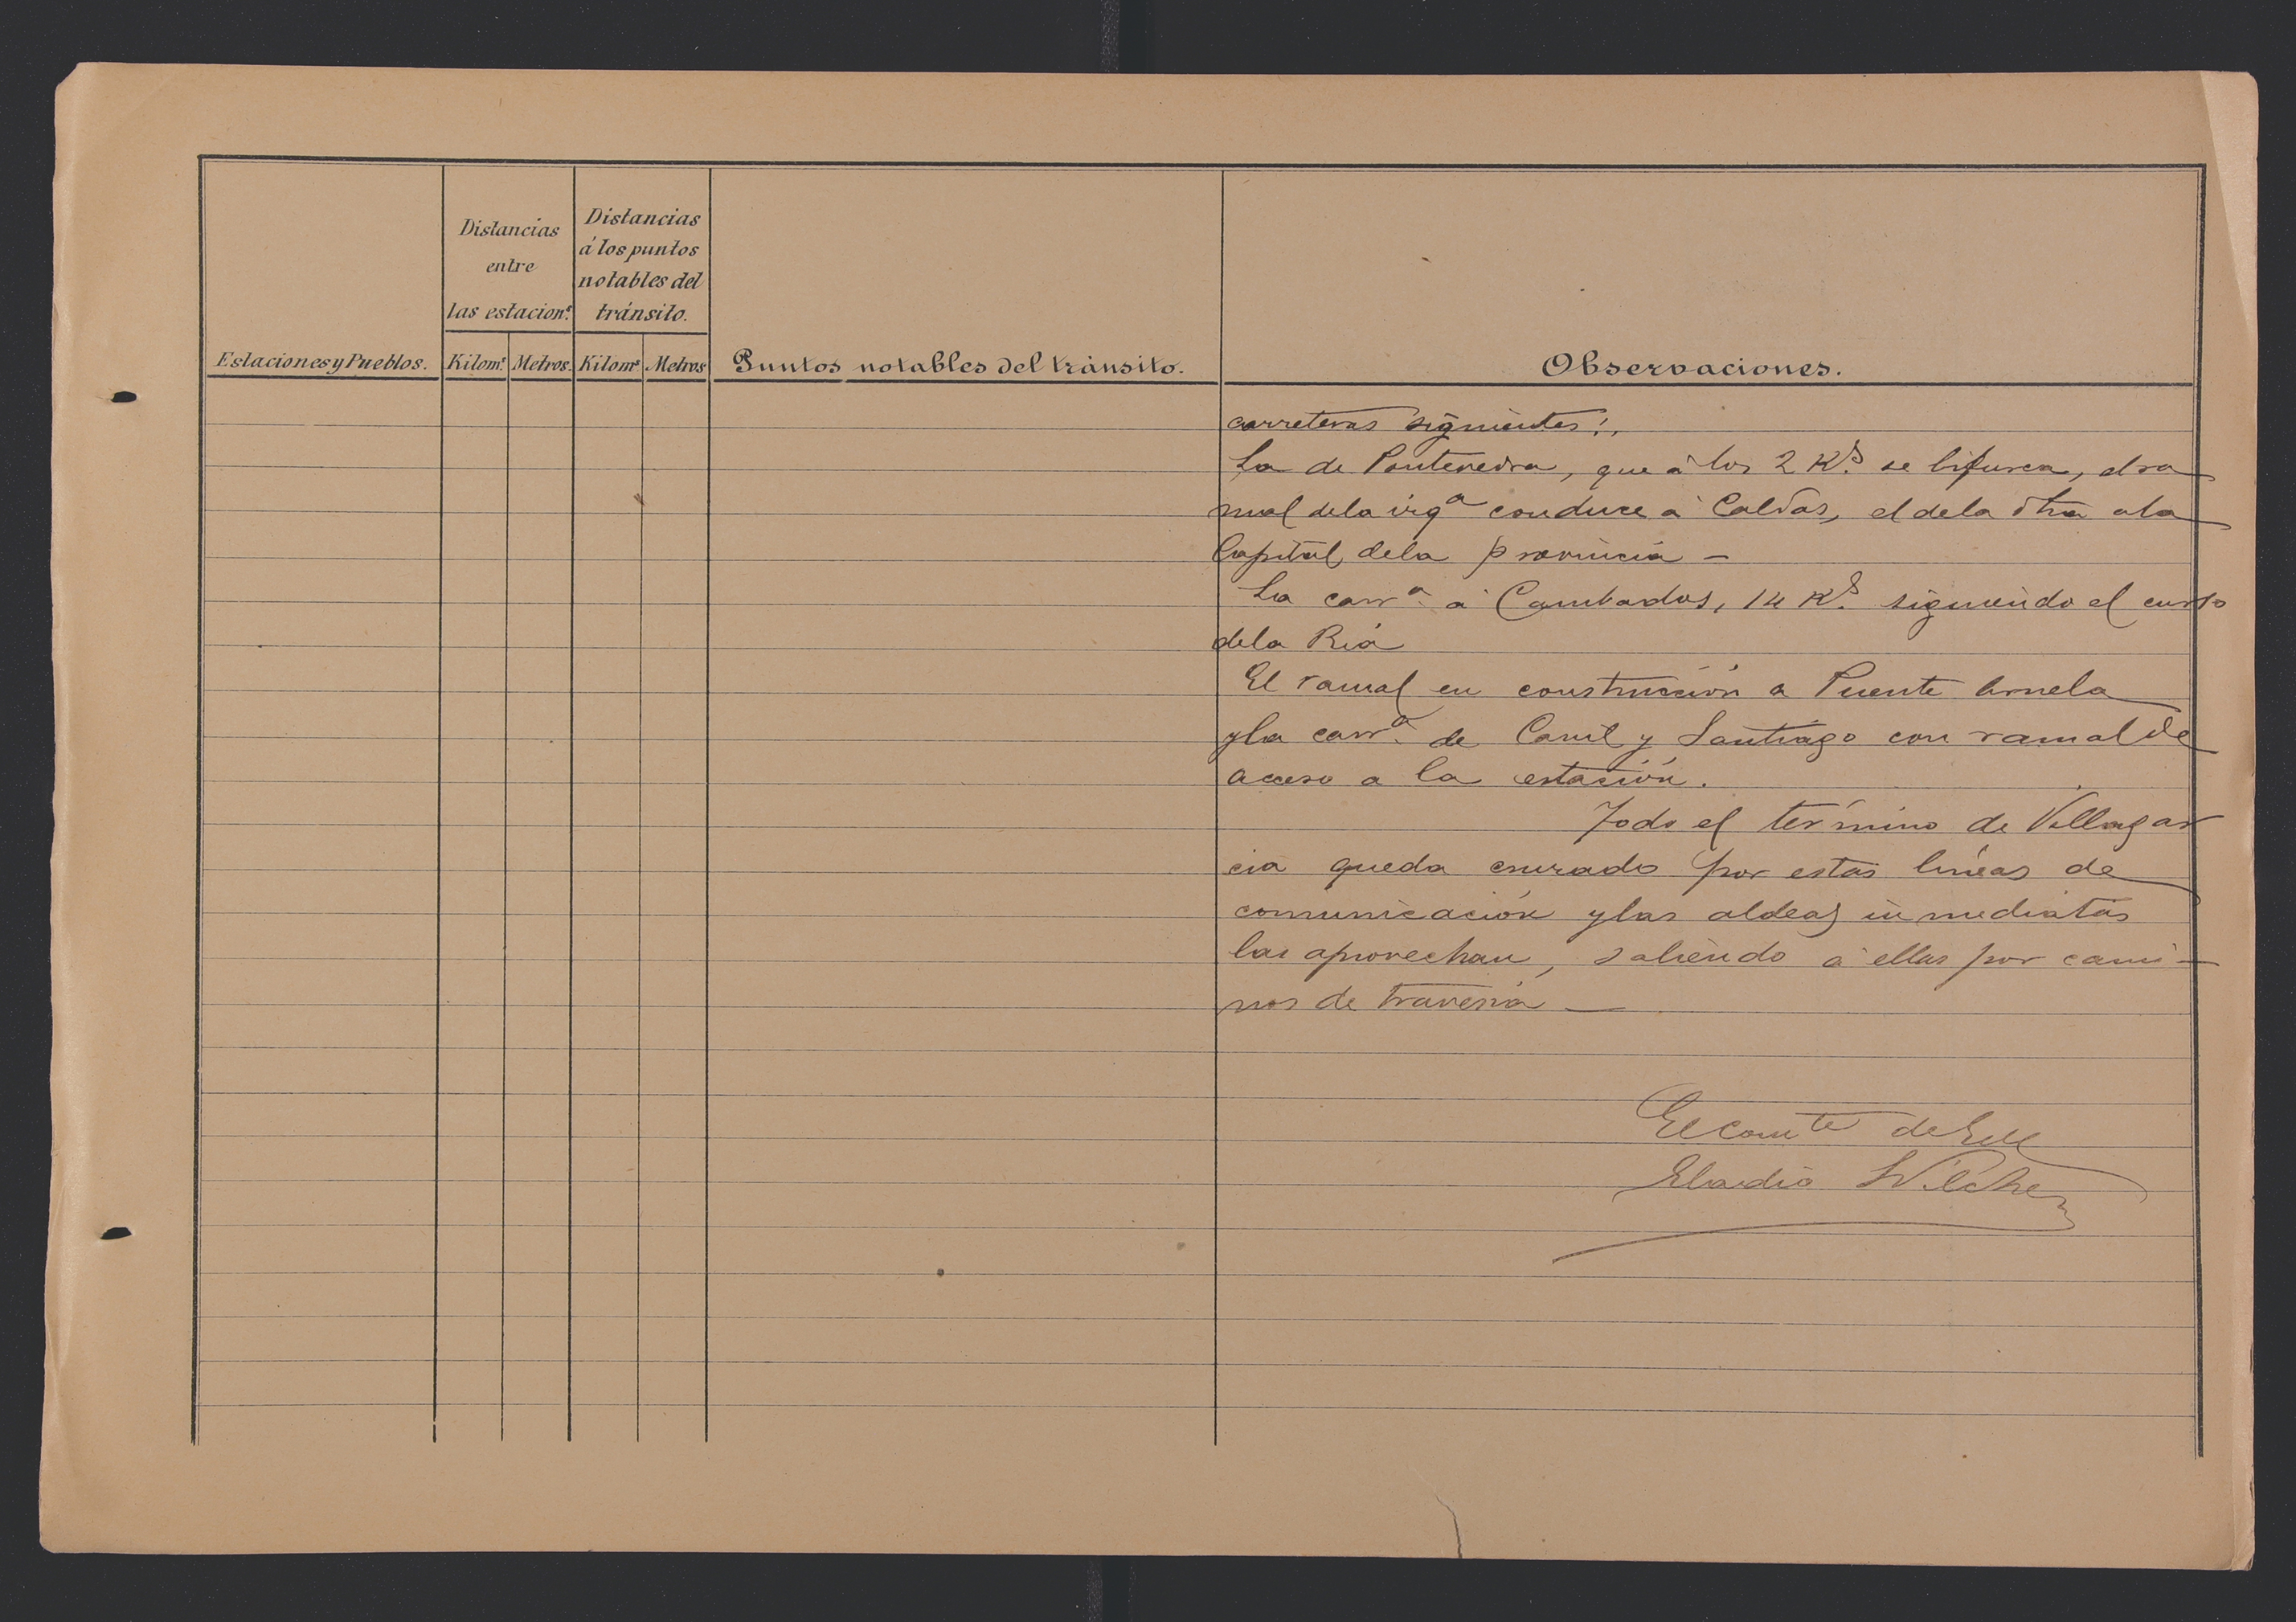 Distancias
entre
las estacion.ˢ
Distancias
á los puntos
notables del
tránsito.
Estaciones y Pueblos.
Kilom.ˢ
Metros.
Kilomˢ
Metros
Puntos notables del tránsito.
Observaciones.
carreteras siguientes:
La de Pontevedra, que á los 2 K.ˢ se bifurca, el ra
mal dela izqª conduce á Caldas, el dela otra ala
Capital dela provincia —
La carrª á Cambados, 14 K.ˢ siguiendo el curso
dela Ría
El ramal en construcción a Puente Arnela
y la carrª de Carril y Santiago con ramal de
acceso a la estación.
Todo el término de Villagar
cia queda cruzado por estas líneas de
comunicación y las aldeas inmediatas
las aprovechan, saliendo á ellas por cami-
nos de travesía —
El Comte de
Eladio Wilchez